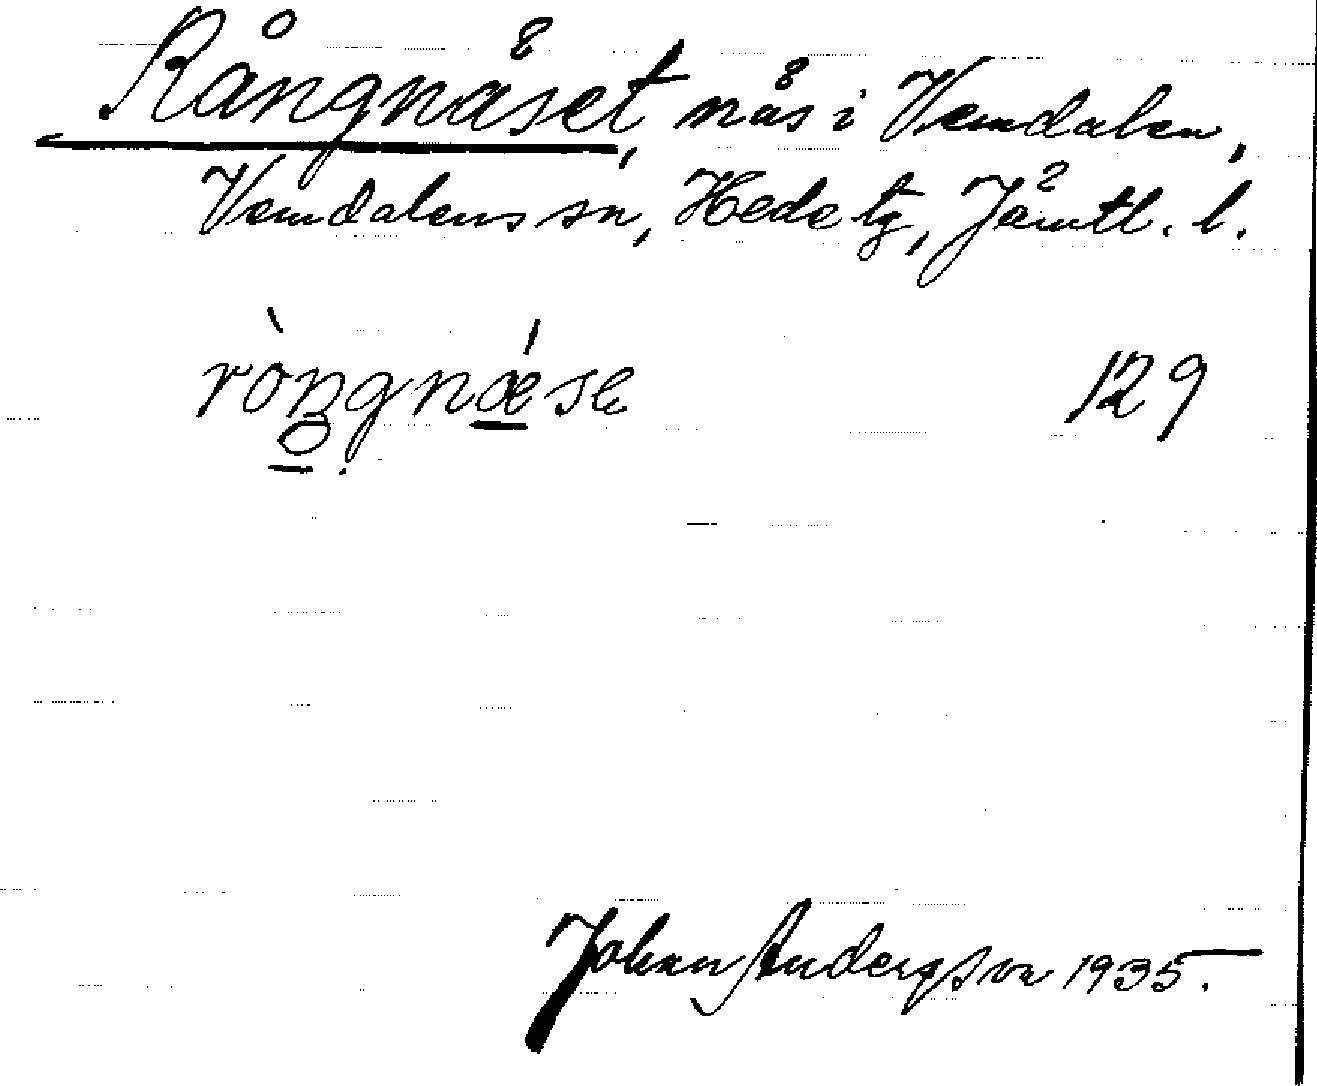 Rångnäset, näs i Vemdalen,
Vemdalens sn, Hede tg, Jämtl. l.
ròŋgnǽse 129
Johan Andersson 1935.